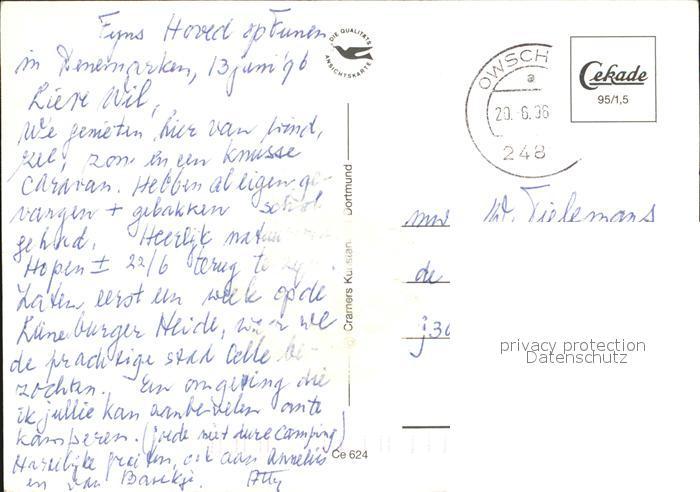 Fyns Hoved op Funen
in Denemarken, 13 juni '96
Lieve Wil,
We genieten hier van wind,
zee, zon en een knusse
caravan. Hebben al eigen ge-
vangen + gebakken schol
gehad. Heerlijk
Hopen ± 22/6 terug te
Zaten eerst een week op de
Lüneburger Heide, waar we
de prachtige stad Celle be-
zochten. Een omgeving die
ik jullie kan aanbevelen om te
kamperen. (goede niet dure camping)
Hartelijke groeten, ook aan Annelies
en van Atty
DIE QUALITÄTS
ANSICHTSKARTE
© Cramers Dortmund
Ce 624
OWSCH
a
20.-6.96
248
Cekade
95/1,5
mw W. Tielemans
de
privacy protection
Datenschutz